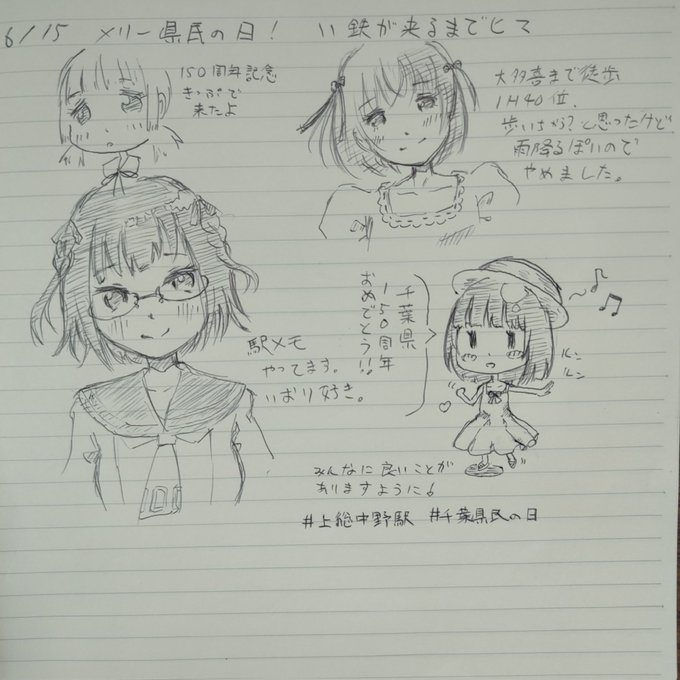 6/15 メリー県民の日! い鉄が来るまでヒマ
150周年記念
きっぷで
来たよ
大多喜まで徒歩
1H40位、
歩いちゃう?と思ったけど
雨降るぽいので
やめました。
駅メモ
やってます。
いおり好き。
千葉県
150周年
おめでとう!!
ルン
ルン
みんなに良いことが
ありますように
#上総中野駅 #千葉県民の日